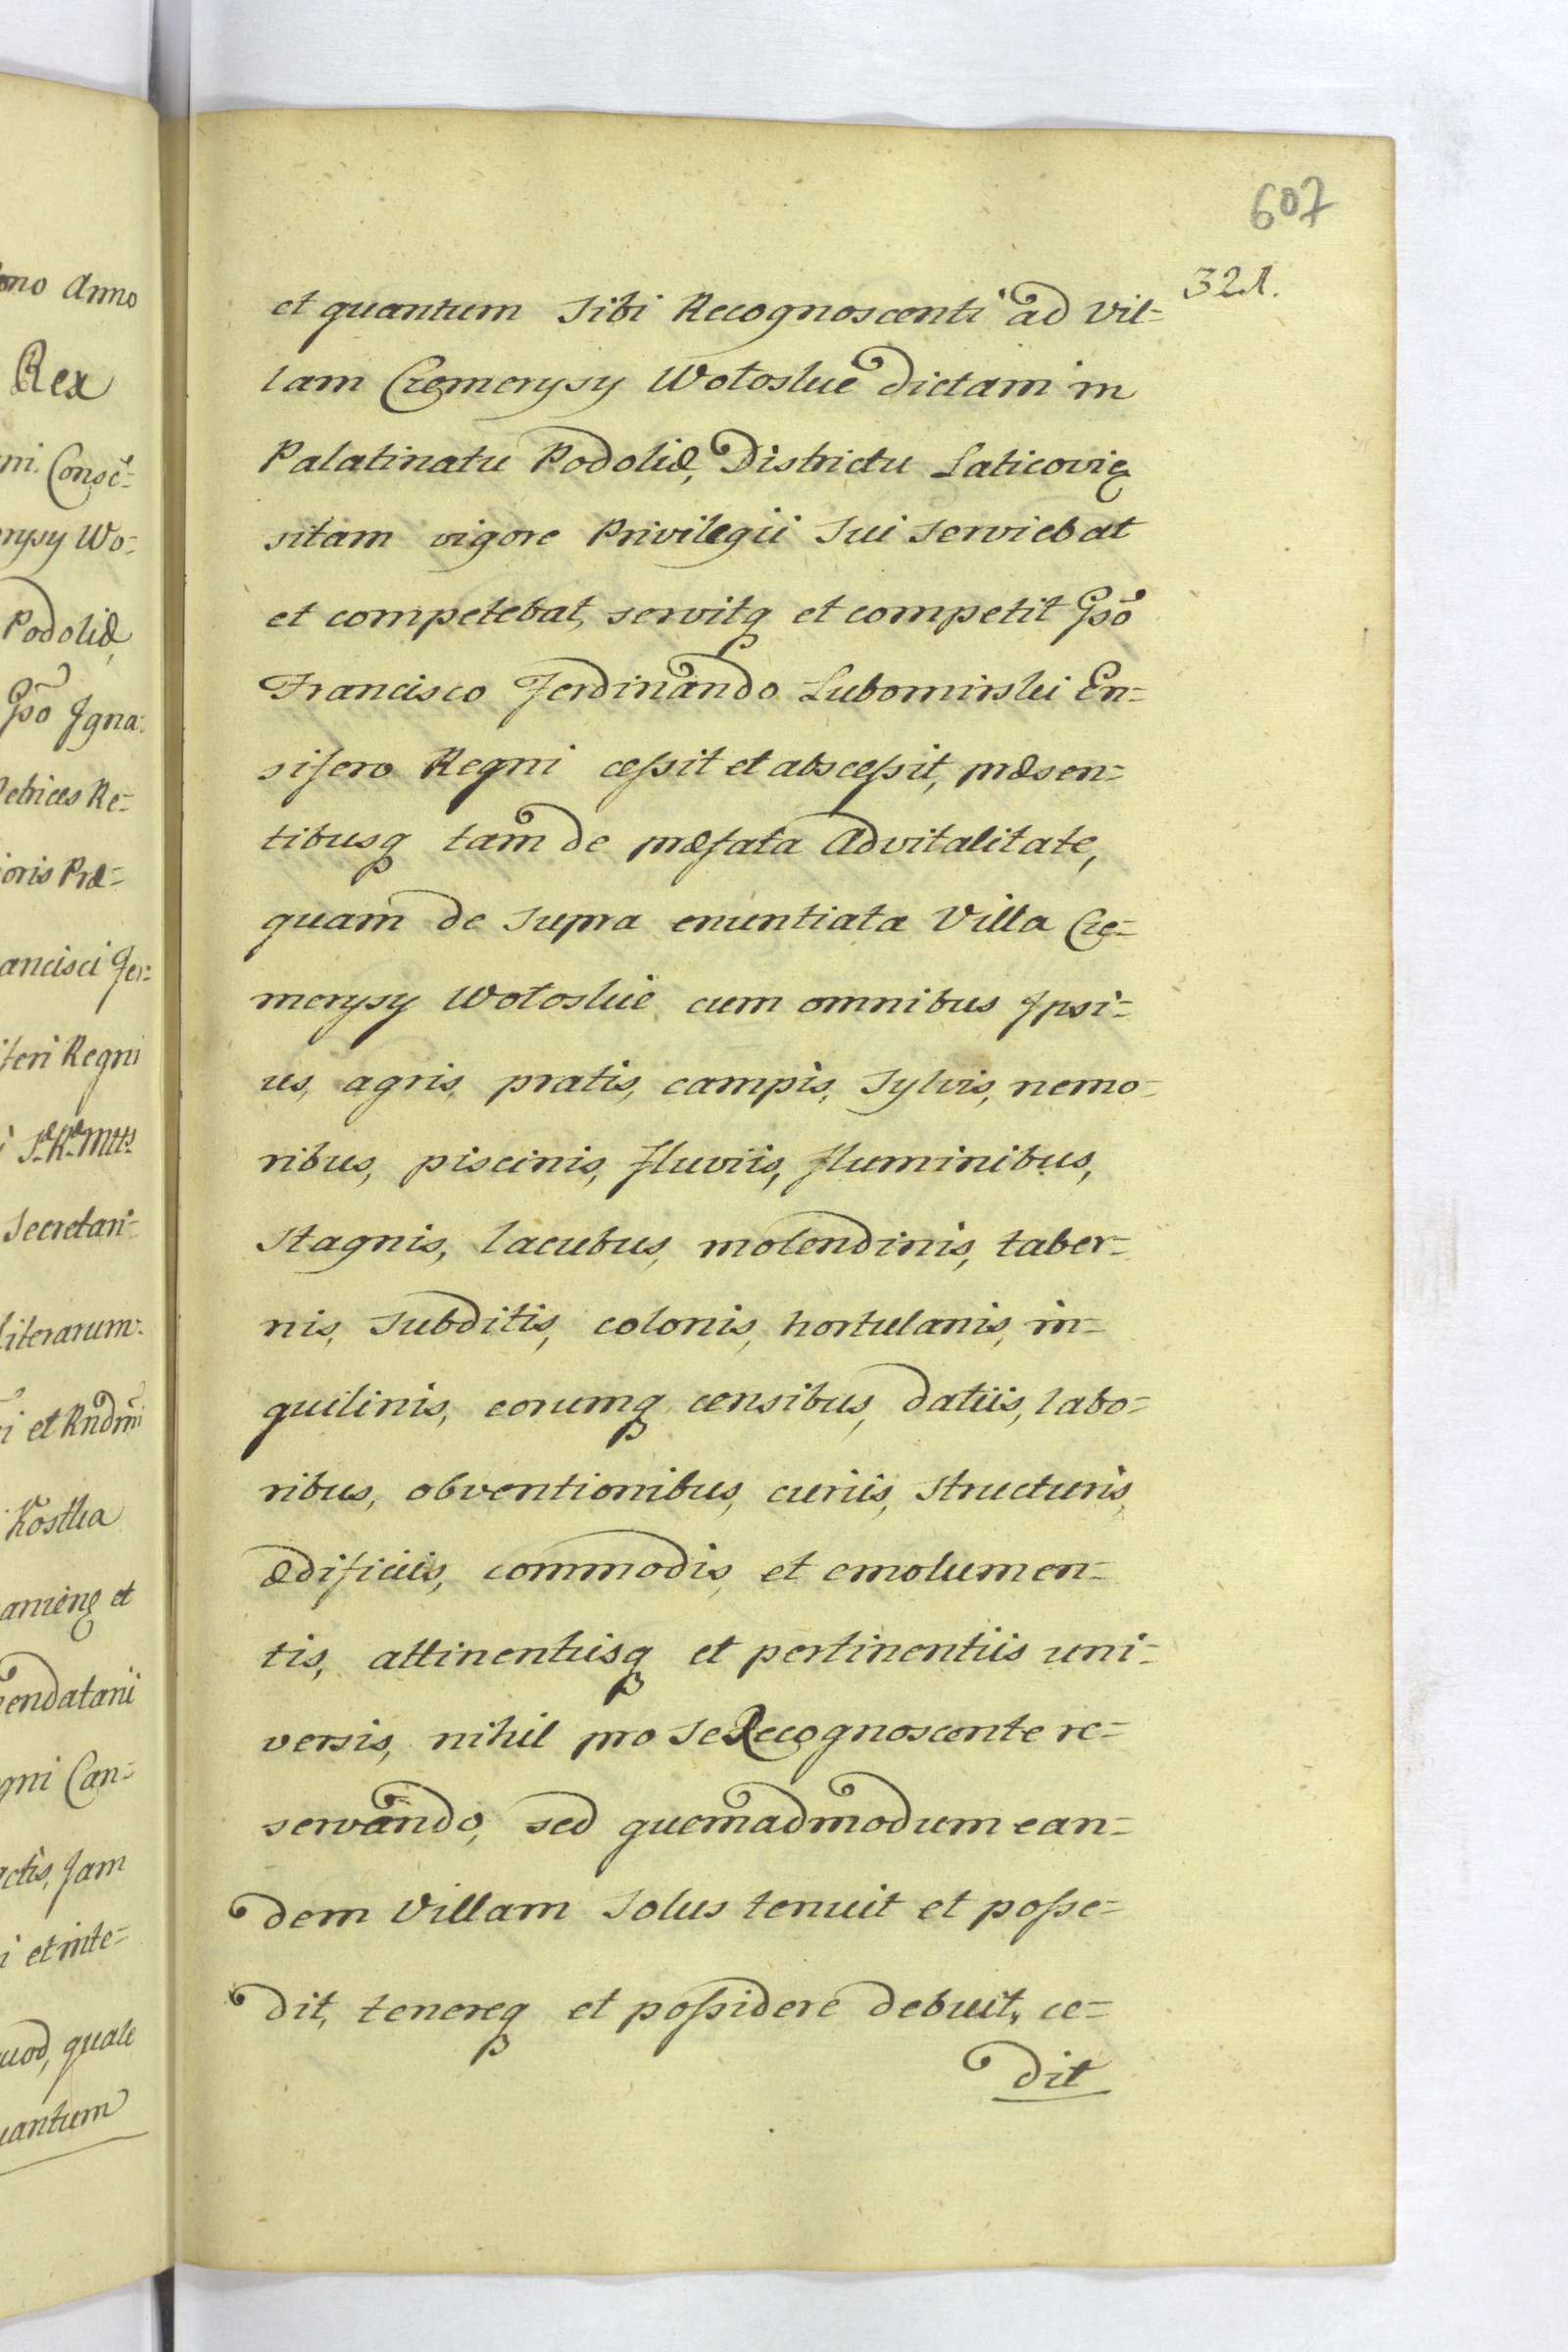 607
321.
et quantum Sibi Recognoscenti ad Vil=
lam Cremerysy Wołoskie dictam in
Palatinatu Podoliæ, Districtu Laticoviæ
sitam vigore Privilegii Sui Serviebat
et competebat, servitq et competit Gsō
Francisco Ferdinando Lubomirski En=
sifero Regni cessit et abscessit, præsen=
tibusq tam de præfata Advitalitate,
quam de Supra enuntiata Villa Cre=
merysy Wołoskie cum omnibus Ipsi=
us, agris, pratis, campis, Sylvis, nemo=
ribus, piscinis, fluviis, fluminibus,
Stagnis, lacubus, molendinis, taber=
nis, Subditis, colonis, hortulanis, in=
quilinis, eorumq censibus, datiis, labo=
ribus, obventionibus, curiis, Structuris,
ædificiis, commodis, et emolumen=
tis, attinentiisq et pertinentiis uni=
versis, nihil pro Se Recognoscente re=
servando, sed quemadmodum ean=
dem Villam Solus tenuit et posse=
dit, tenereq et possidere debuit, ce=
dit
ono Anno
Rex
ni. Consē=
rysy Wo=
Podoliæ,
Gsō Igna=
etrices Re=
ioris Præ=
ancisci Fer=
feri Regni
i S. R. Mttis
Secretari=
literarum
i et Rndmi
Kostka
amenq et
endatarii
gni Can=
actis, Jam
i et inte=
uod, quale
uantum